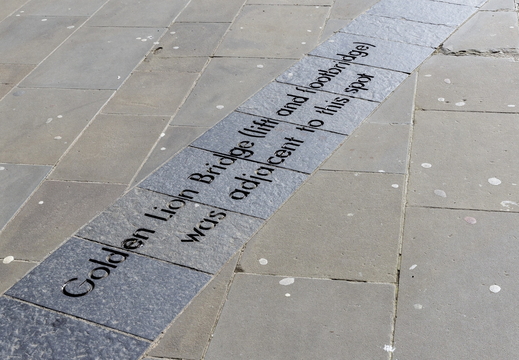 Golden Lion Bridge (lift and footbridge)
was adjacent to this spot